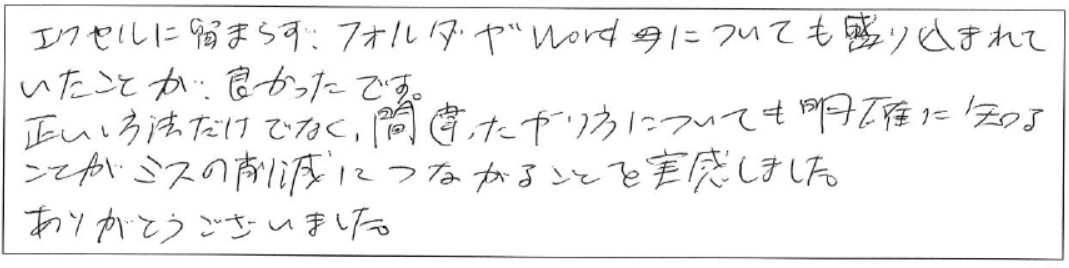 エクセルに留まらず、フォルダやWord等についても盛り込まれて
いたことが、良かったです。
正しい方法だけでなく、間違ったやり方についても明確に知る
ことがミスの削減につながることを実感しました。
ありがとうございました。